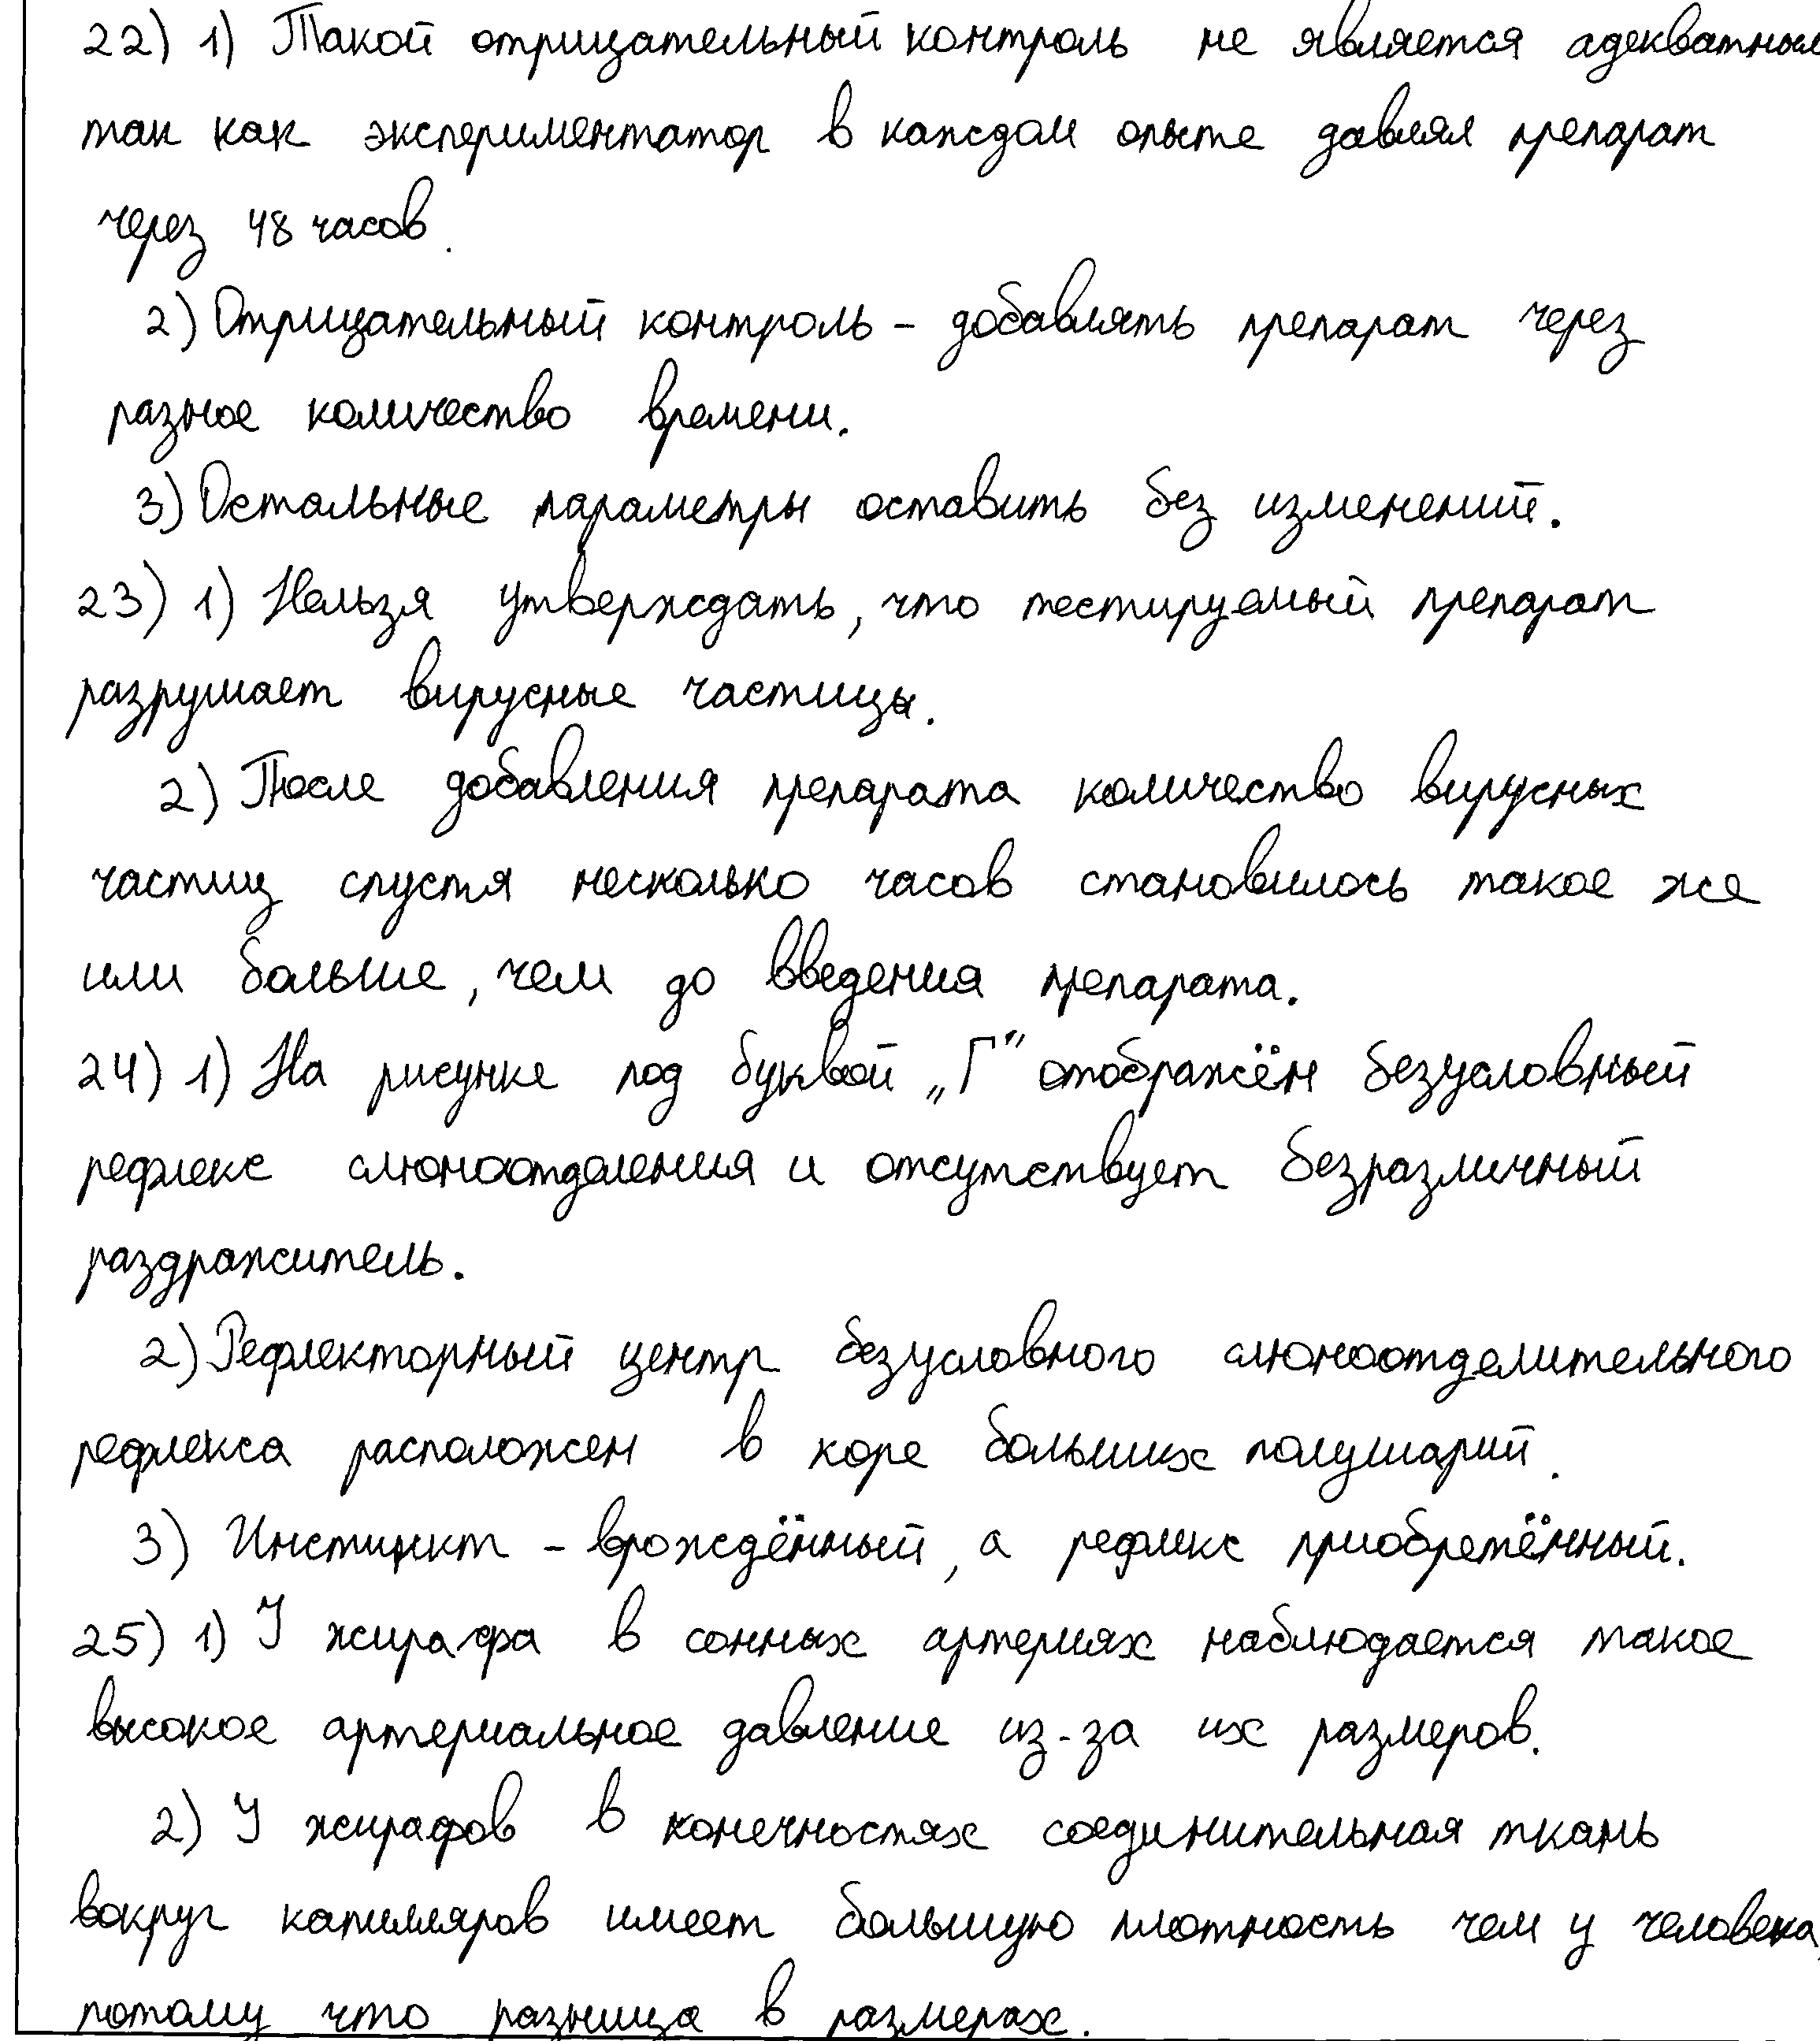 22) 1) Такой отрицательный контроль не является адекватным
так как экспериментатор в каждом опыте давлял препарат
через 48 часов.
2) Отрицательный контроль - добавлять препарат через
разное количество времени.
3) Остальные параметры оставить без изменений.
23) 1) Нельзя утверждать, что тестируемый препарат
разрушает вирусные частицы.
2) После добавления препарата количество вирусных
частиц спустя несколько часов становилось такое же
или больше, чем до введения препарата.
24) 1) На рисунке под буквой „Г" отображён безусловный
рефлекс слюноотделения и отсутствует безразличный
раздражитель.
2) Рефлекторный центр безусловного слюноотделительного
рефлекса расположен в коре больших полушарий.
3) Инстинкт - врождённый, а рефлекс приобретённый.
25) 1) У жирафа в сонных артериях наблюдается такое
высокое артериальное давление из-за их размеров.
2) У жирафов в конечностях соединительная ткань
вокруг капилляров имеет большую плотность чем у человека,
потому что разница в размерах.